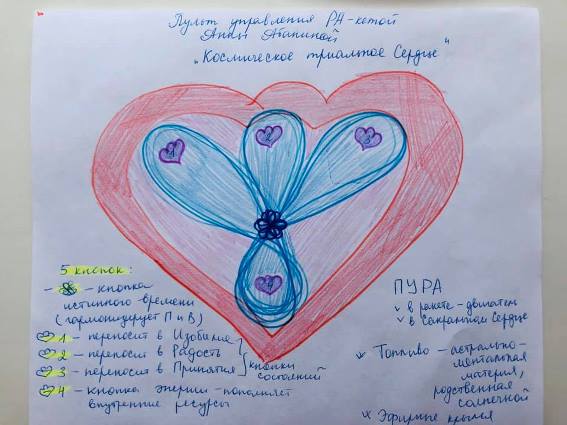 Пульт управления РА-кетой
Анны
"Космическое триальное Сердце"
1
2
3
4
5 кнопок:
- кнопка
истинного времени
(гармонизирует П и В)
1 - переносит в Изобилие
2 - переносит в Радость
3 - переносит в Принятие
кнопки
состояний
4 - кнопка энергии - пополняет
внутренние ресурсы
ПУРА
в ракете - двигатель
в Сакральном Сердце
Топливо - астрально-
ментальная
материя,
родственная
солнечной
Эфирные крылья